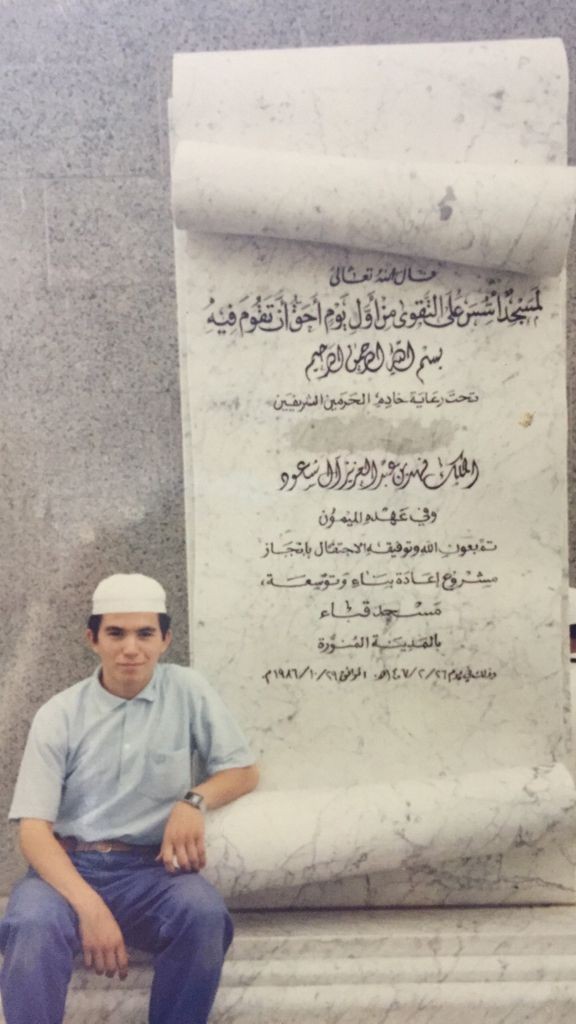 قال الله تعالى
لمسجد أسس على التقوى من أول يوم أحق أن تقوم فيه
بسم الله الرحمن الرحيم
تحت رعاية خادم الحرمين الشريفين
الملك فهد بن عبد العزيز آل سعود
وفي عهده الميمون
تم بعون الله وتوفيقه الاحتفال بإنجاز
مشروع إعادة بناء وتوسعة،
مسجد قباء
بالمدينة المنورة
وذلك في يوم ٢٦/٢/١٤٠٧هـ الموافق ٢٩/١٠/١٩٨٦م